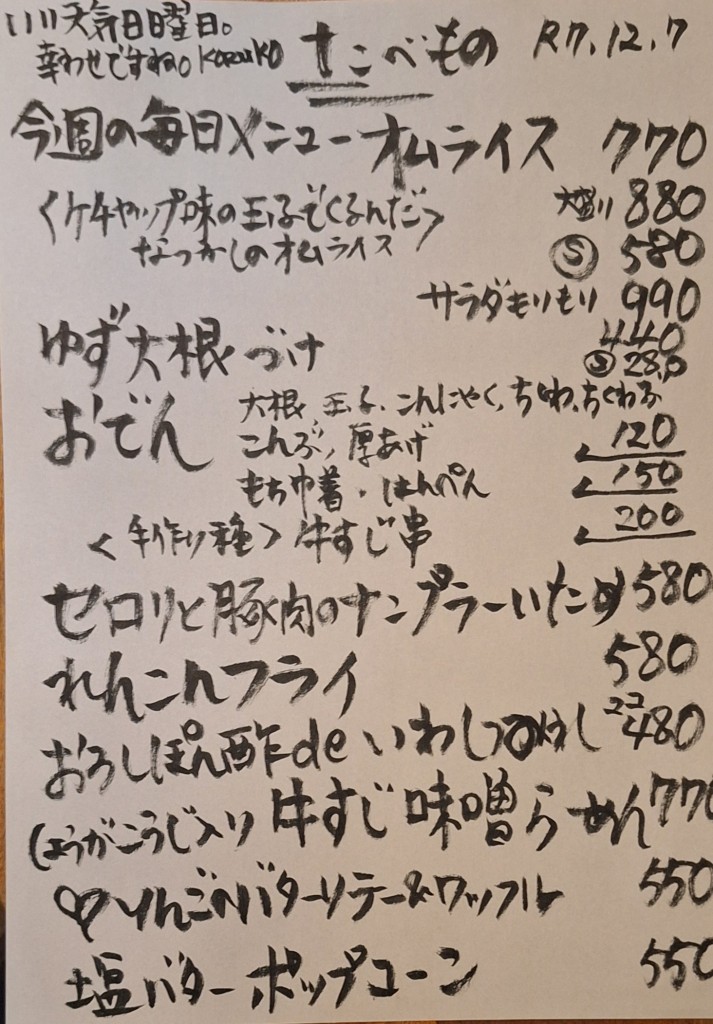 いい天気日曜日。
幸わせですね。KORUKO
たこべもの R7.12.7
今週の毎日メニューオムライス 770
〈ケチャップ味の玉子でくるんだ〉 大盛り 880
なつかしのオムライス Ⓢ 580
サラダもりもり 990
ゆず大根づけ 440
Ⓢ 280
おでん 大根、玉子、こんにゃく、ちくわ、ちくわぶ
こんぶ、厚あげ 120
もち巾着・はんぺん 150
〈手作り種〉牛すじ串 200
セロリと豚肉のナンプラーいため 580
れんこんフライ 580
おろしぽん酢deいわしつみれし 2コ 480
しょうがこうじ入り牛すじ味噌らーめん 770
♡りんごのバターソテー&ワッフル 550
塩バターポップコーン 550